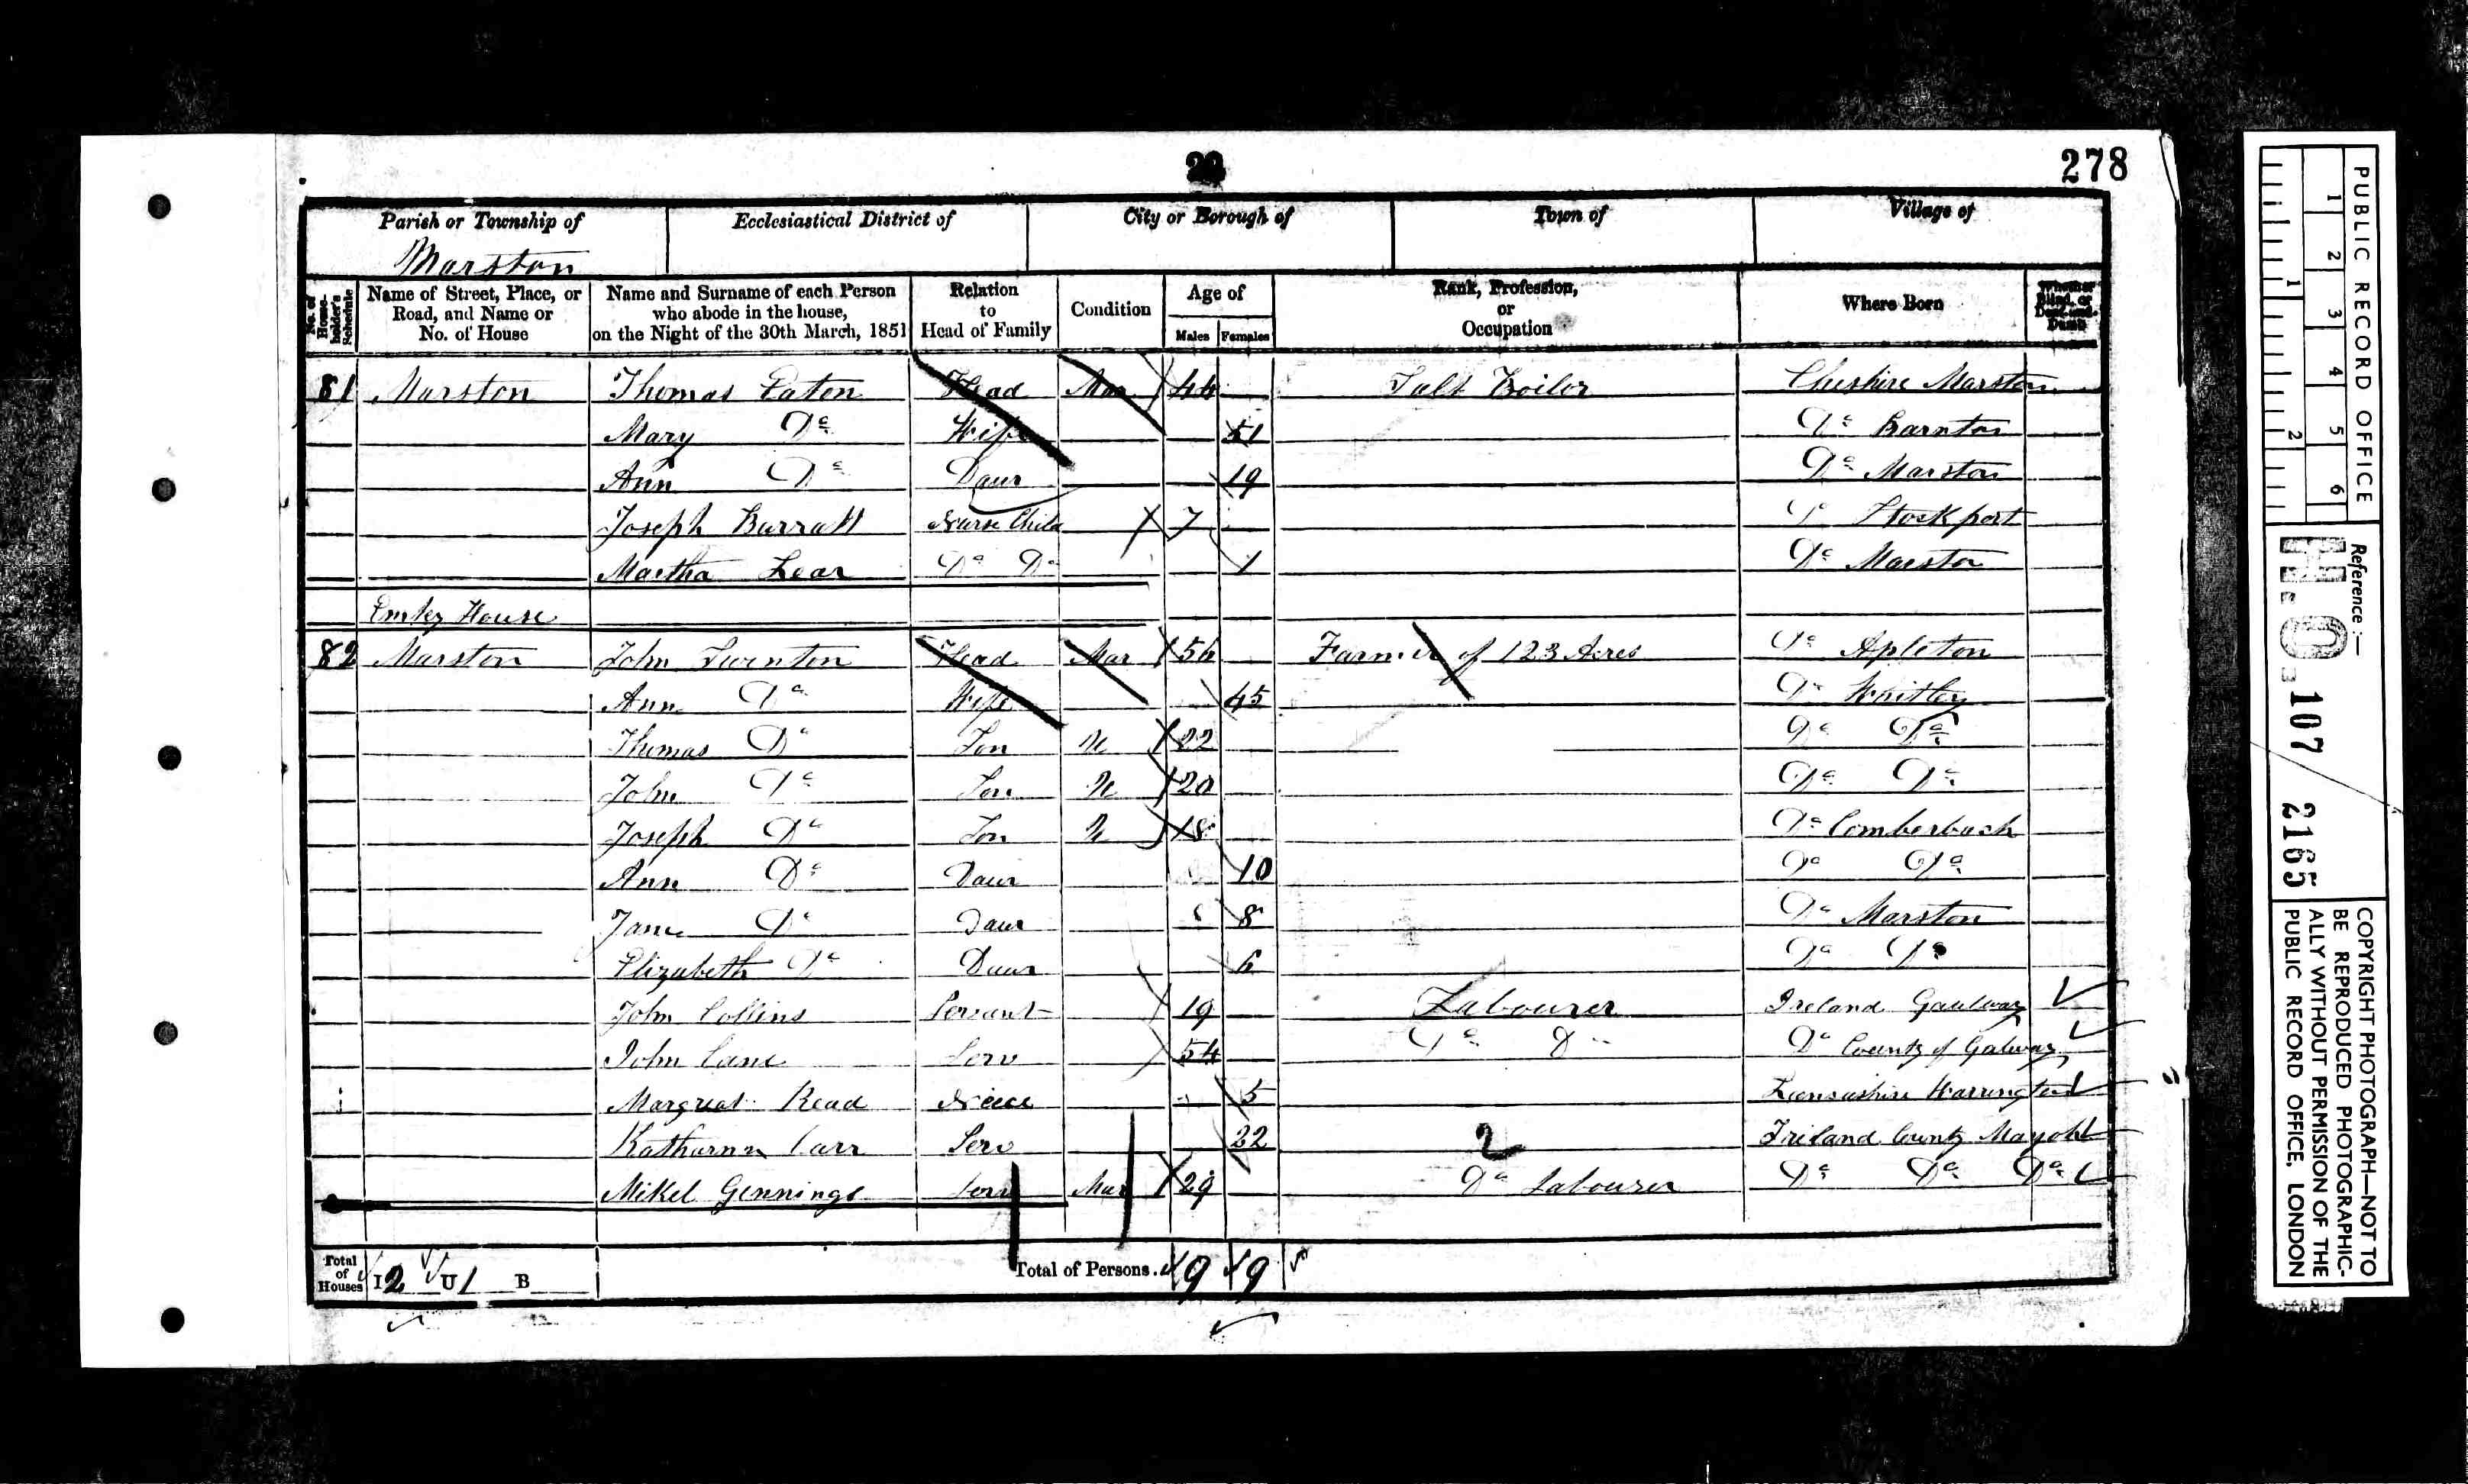 278
Parish or Township of Ecclesiastical District of City or Borough of Town of Village of
Marston
No. of Householder's Schedule Name of Street, Place, or Road, and Name or No. of House Name and Surname of each Person who abode in the house, on the Night of the 30th March, 1851 Relation to Head of Family Condition Age of Males Females Rank, Profession, or Occupation Where Born Whether Blind, or Deaf-and-Dumb
81 Marston Thomas Eaton Head Mar 44 Salt Boiler Cheshire Marston
Mary Do Wife 51 Do Barnton
Ann Do Daur 19 Do Marston
Joseph Nurse Child 7 Do Stockport
Martha Lear Do Do 1 Do Marston
Emty House
82 Marston John Swinton Head Mar Farmer of 123 Acres Do Apleton
Ann Do Wife 45 Do Whitley
Thomas Do Son U 22 Do Do
John Do Son U 20 Do Do
Joseph Do Son U 18 Do Comberbach
Ann Do Daur 10 Do Do
Jane Do Daur 8 Do Marston
Elizabeth Do Daur 6 Do Do
John Collins Servant 19 Labourer Ireland Gaulway
John Cane Serv 54 Do Do Do County of Galway
Margreat Read Neice 5 Lancashire Warrington
Carr Serv 22 Ireland County
2
Mikel Gennings Serv Mar 29 Do Labourer Do Do Do
Total of Houses I 2 U 1 B Total of Persons 9 9
PUBLIC RECORD OFFICE
1 2 3 4 5 6
1 2
Reference:—
H.O. 107 2165
COPYRIGHT PHOTOGRAPH—NOT TO
BE REPRODUCED PHOTOGRAPHIC-
ALLY WITHOUT PERMISSION OF THE
PUBLIC RECORD OFFICE, LONDON